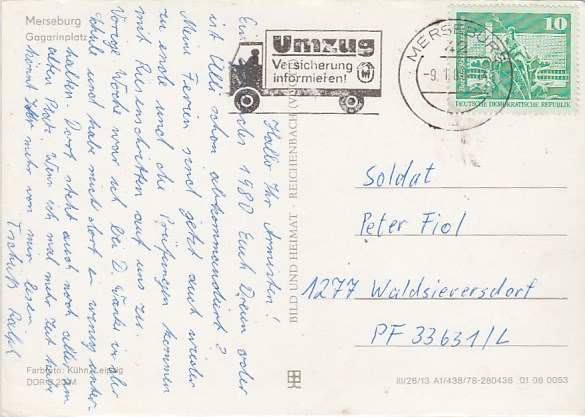 Merseburg
Gagarinplatz
Hallo Ihr Armisten!
Ein gutes 1980 Euch Dreien oder
ist Ulli schon abkommandiert?
Meine Ferien sind jetzt auch wieder
zu ende und die Prüfungen kommen
mit Riesenschritten auf uns zu.
Vorige Woche war ich bei D. in der
Schule und habe mich dort ein wenig unter-
halten. Dort steht auch noch alles am
alten Platz. Wenn ich mal mehr Zeit habe
könnt Ihr mehr von mir lesen.
Tschüß Ralph
Farbfoto: Kühn, Leipzig
BILD UND HEIMAT · REICHENBACH
Umzug
Versicherung
informieren!
MERSEBURG
42
-9.1.8
10
DEUTSCHE DEMOKRATISCHE REPUBLIK
Soldat
Peter Fiol
1277 Waldsieversdorf
PF 33631/L
III/26/13 A1/438/78-280438 01 08 0053